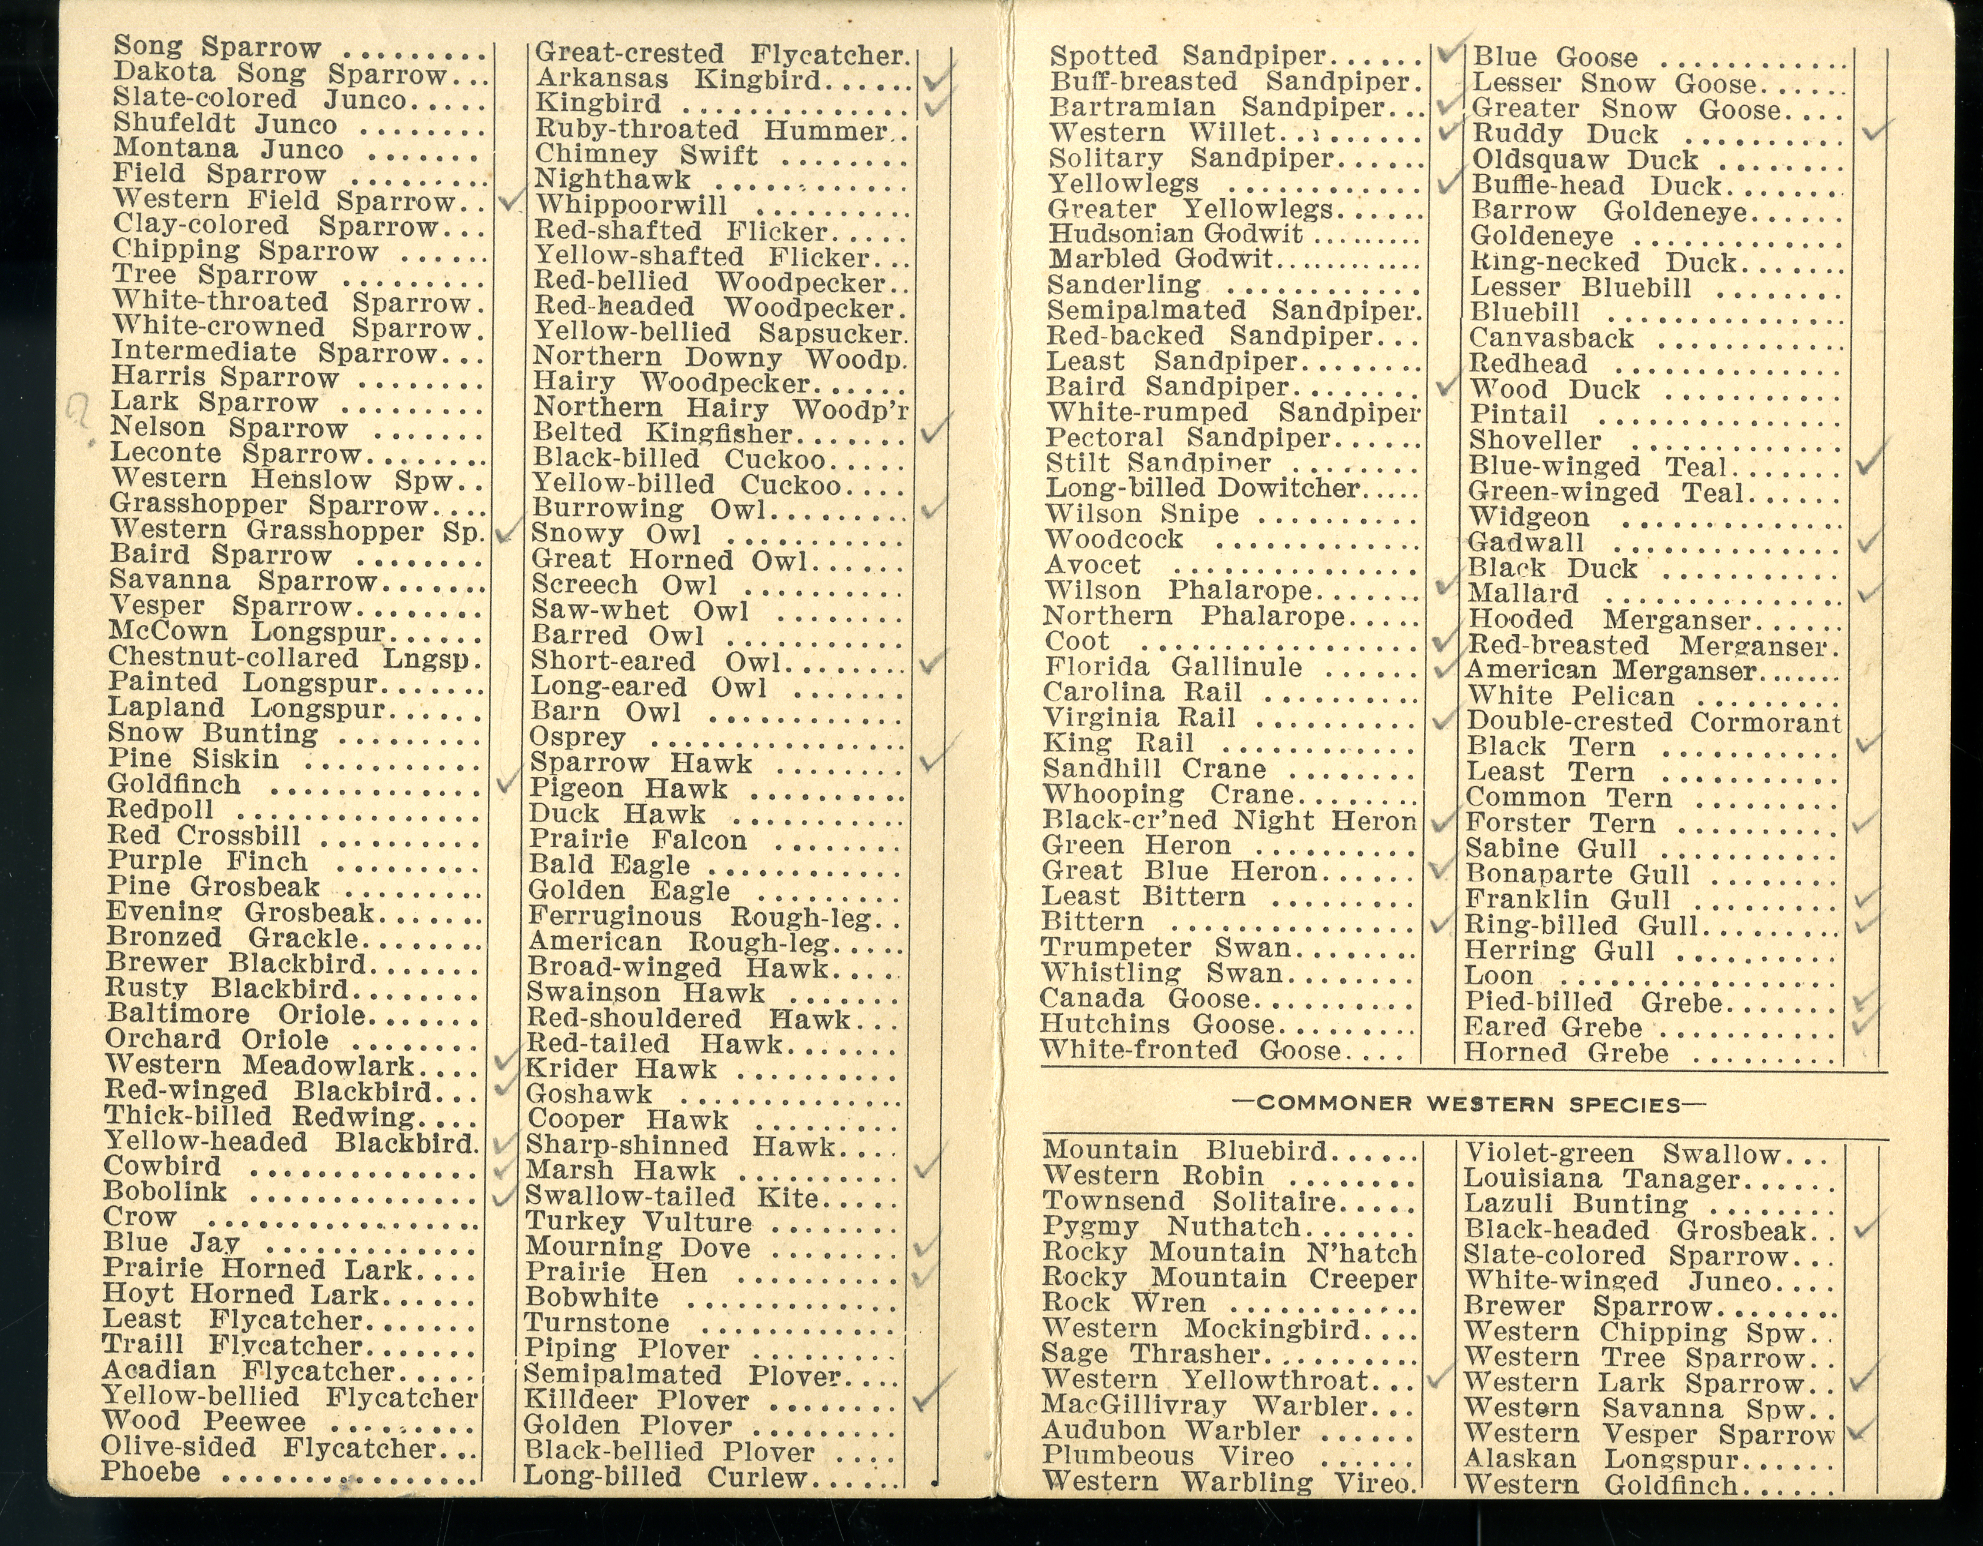 Song Sparrow .........
Dakota Song Sparrow...
Slate-colored Junco.....
Shufeldt Junco ........
Montana Junco .......
Field Sparrow .........
Western Field Sparrow.. ✓
Clay-colored Sparrow...
Chipping Sparrow ......
Tree Sparrow .........
White-throated Sparrow.
White-crowned Sparrow.
Intermediate Sparrow...
Harris Sparrow ........
? Lark Sparrow .........
Nelson Sparrow .......
Leconte Sparrow........
Western Henslow Spw..
Grasshopper Sparrow....
Western Grasshopper Sp. ✓
Baird Sparrow ........
Savanna Sparrow.......
Vesper Sparrow........
McCown Longspur......
Chestnut-collared Lngsp.
Painted Longspur.......
Lapland Longspur......
Snow Bunting .........
Pine Siskin ...........
Goldfinch ............. ✓
Redpoll ...............
Red Crossbill ..........
Purple Finch .........
Pine Grosbeak .........
Evening Grosbeak.......
Bronzed Grackle........
Brewer Blackbird.......
Rusty Blackbird........
Baltimore Oriole.......
Orchard Oriole ........
Western Meadowlark.... ✓
Red-winged Blackbird... ✓
Thick-billed Redwing....
Yellow-headed Blackbird. ✓
Cowbird .............. ✓
Bobolink .............. ✓
Crow .................
Blue Jay .............
Prairie Horned Lark....
Hoyt Horned Lark......
Least Flycatcher.......
Traill Flycatcher.......
Acadian Flycatcher.....
Yellow-bellied Flycatcher
Wood Peewee .........
Olive-sided Flycatcher...
Phoebe ................
Great-crested Flycatcher.
Arkansas Kingbird...... ✓
Kingbird .............. ✓
Ruby-throated Hummer..
Chimney Swift ........
Nighthawk ............
Whippoorwill ..........
Red-shafted Flicker.....
Yellow-shafted Flicker...
Red-bellied Woodpecker..
Red-headed Woodpecker.
Yellow-bellied Sapsucker.
Northern Downy Woodp.
Hairy Woodpecker......
Northern Hairy Woodp'r
Belted Kingfisher....... ✓
Black-billed Cuckoo.....
Yellow-billed Cuckoo....
Burrowing Owl......... ✓
Snowy Owl ............
Great Horned Owl......
Screech Owl ..........
Saw-whet Owl ........
Barred Owl ...........
Short-eared Owl........ ✓
Long-eared Owl .......
Barn Owl ............
Osprey ................
Sparrow Hawk ........ ✓
Pigeon Hawk ..........
Duck Hawk ...........
Prairie Falcon ........
Bald Eagle ............
Golden Eagle .........
Ferruginous Rough-leg..
American Rough-leg.....
Broad-winged Hawk....
Swainson Hawk .......
Red-shouldered Hawk...
Red-tailed Hawk.......
Krider Hawk ..........
Goshawk ..............
Cooper Hawk .........
Sharp-shinned Hawk....
Marsh Hawk .......... ✓
Swallow-tailed Kite.....
Turkey Vulture ........
Mourning Dove ........ ✓
Prairie Hen .......... ✓
Bobwhite .............
Turnstone ............
Piping Plover .........
Semipalmated Plover....
Killdeer Plover ........ ✓
Golden Plover .........
Black-bellied Plover ....
Long-billed Curlew......
Spotted Sandpiper...... ✓
Buff-breasted Sandpiper.
Bartramian Sandpiper... ✓
Western Willet......... ✓
Solitary Sandpiper......
Yellowlegs ............ ✓
Greater Yellowlegs......
Hudsonian Godwit .........
Marbled Godwit............
Sanderling ............
Semipalmated Sandpiper.
Red-backed Sandpiper...
Least Sandpiper........
Baird Sandpiper........ ✓
White-rumped Sandpiper
Pectoral Sandpiper......
Stilt Sandpiper ........
Long-billed Dowitcher.....
Wilson Snipe ..........
Woodcock .............
Avocet ...............
Wilson Phalarope....... ✓
Northern Phalarope.....
Coot ................. ✓
Florida Gallinule ...... ✓
Carolina Rail ..........
Virginia Rail .......... ✓
King Rail ............
Sandhill Crane ........
Whooping Crane........
Black-cr'ned Night Heron ✓
Green Heron ..........
Great Blue Heron...... ✓
Least Bittern .........
Bittern ............... ✓
Trumpeter Swan........
Whistling Swan........
Canada Goose..........
Hutchins Goose.........
White-fronted Goose....
Blue Goose ............
Lesser Snow Goose......
Greater Snow Goose....
Ruddy Duck .......... ✓
Oldsquaw Duck ........
Buffle-head Duck.......
Barrow Goldeneye......
Goldeneye .............
Ring-necked Duck.......
Lesser Bluebill ........
Bluebill ...............
Canvasback ............
Redhead ..............
Wood Duck ...........
Pintail ...............
Shoveller .............
Blue-winged Teal....... ✓
Green-winged Teal......
Widgeon ..............
Gadwall .............. ✓
Black Duck ...........
Mallard ............... ✓
Hooded Merganser......
Red-breasted Merganser.
American Merganser.......
White Pelican .........
Double-crested Cormorant
Black Tern ........... ✓
Least Tern ...........
Common Tern .........
Forster Tern .......... ✓
Sabine Gull ...........
Bonaparte Gull ........
Franklin Gull ......... ✓
Ring-billed Gull......... ✓
Herring Gull ..........
Loon .................
Pied-billed Grebe....... ✓
Eared Grebe ........... ✓
Horned Grebe .........
—COMMONER WESTERN SPECIES—
Mountain Bluebird......
Western Robin ........
Townsend Solitaire.....
Pygmy Nuthatch.......
Rocky Mountain N'hatch
Rocky Mountain Creeper
Rock Wren ............
Western Mockingbird....
Sage Thrasher..........
Western Yellowthroat... ✓
MacGillivray Warbler...
Audubon Warbler ......
Plumbeous Vireo ......
Western Warbling Vireo.
Violet-green Swallow...
Louisiana Tanager......
Lazuli Bunting ........
Black-headed Grosbeak.. ✓
Slate-colored Sparrow...
White-winged Junco....
Brewer Sparrow........
Western Chipping Spw..
Western Tree Sparrow..
Western Lark Sparrow.. ✓
Western Savanna Spw..
Western Vesper Sparrow ✓
Alaskan Longspur......
Western Goldfinch......